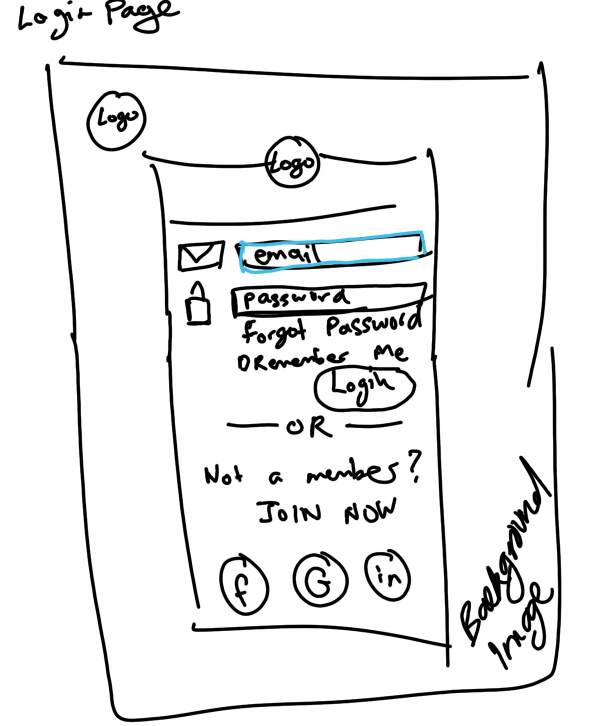 Login Page
Logo
Logo
email
password
forgot Password
Remember Me
Login
OR
Not a member?
JOIN NOW
f
G
in
Background
Image